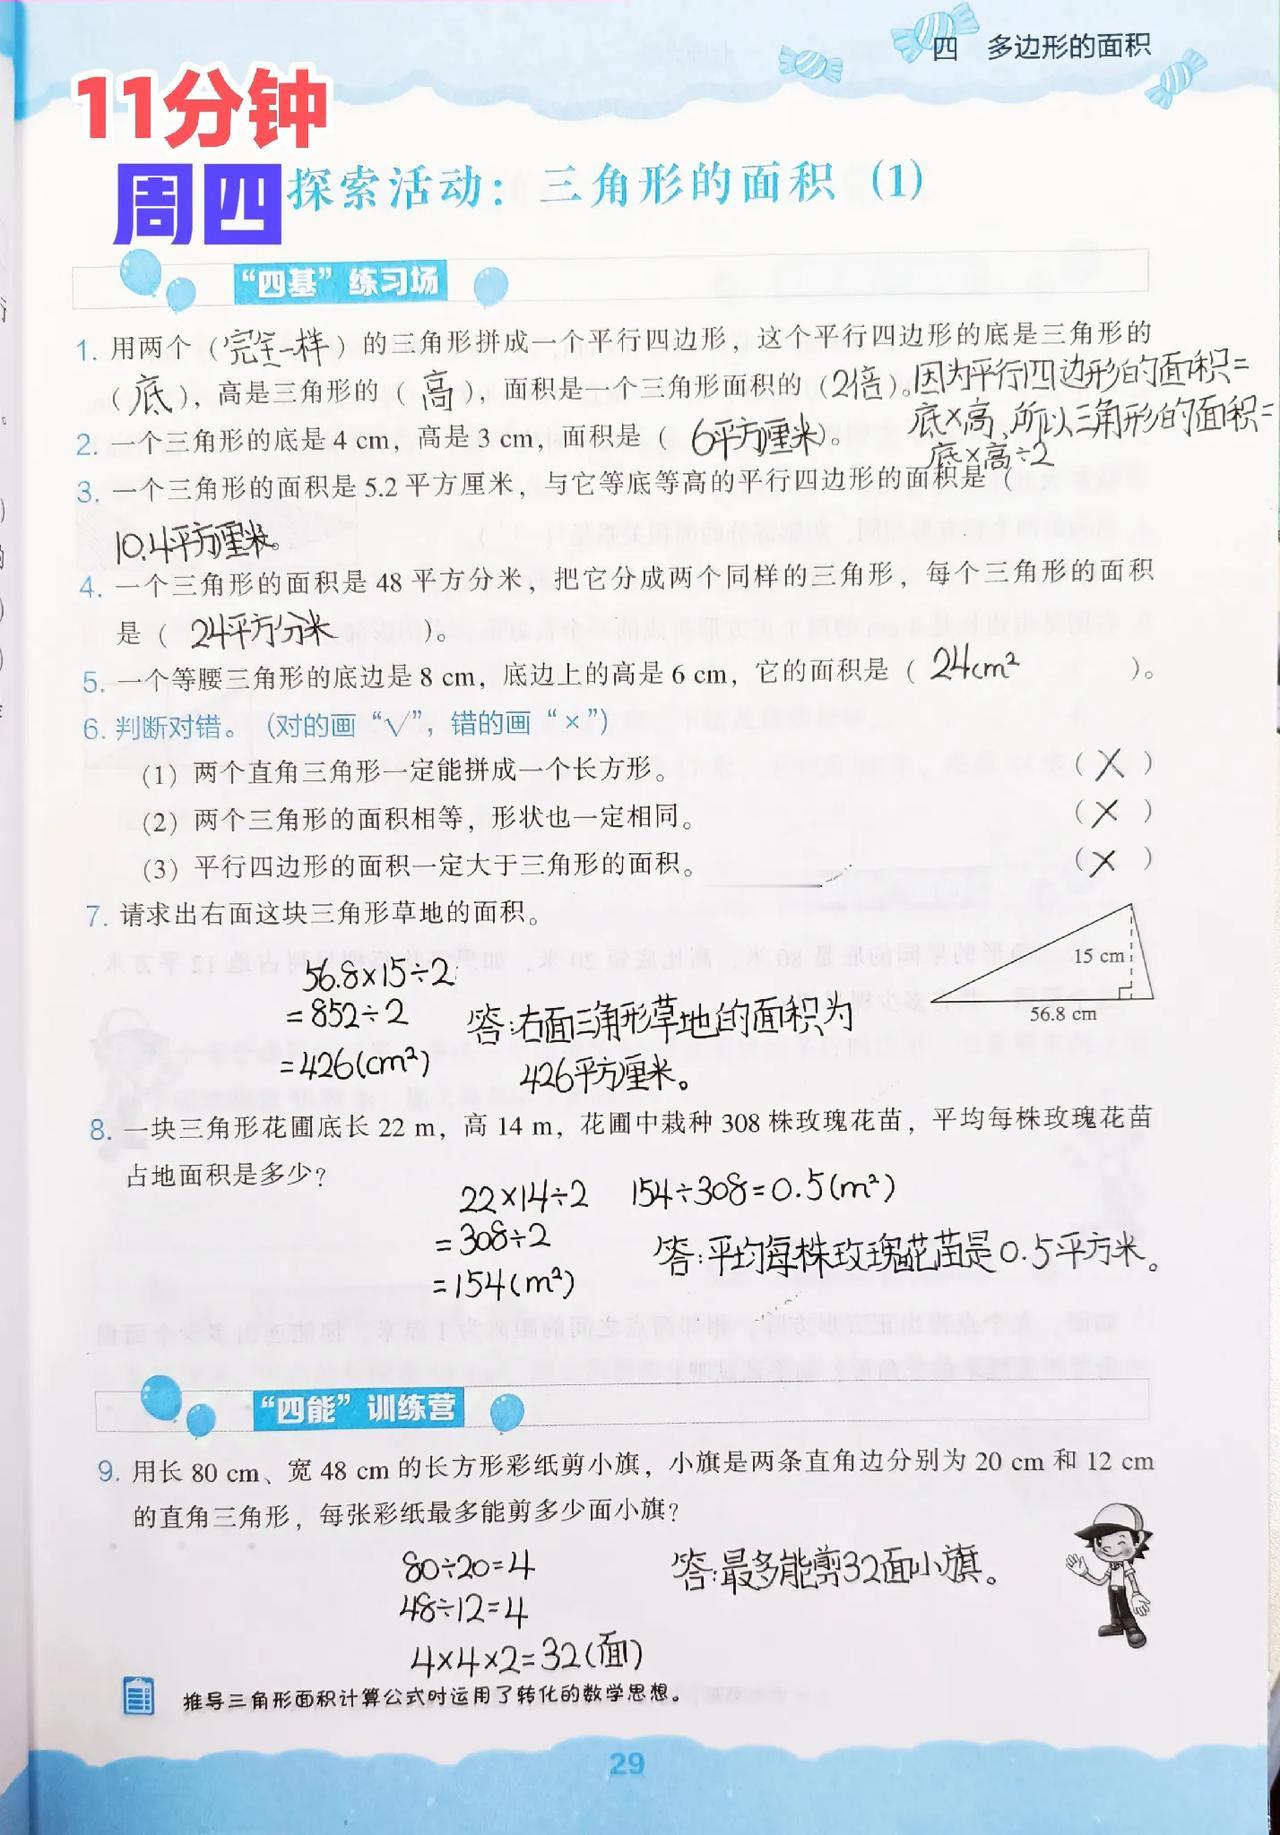 四 多边形的面积
11分钟
周四 探索活动：三角形的面积（1）
“四基”练习场
1. 用两个（完全一样）的三角形拼成一个平行四边形，这个平行四边形的底是三角形的
（底），高是三角形的（高），面积是一个三角形面积的（2倍）。因为平行四边形的面积=
底×高，所以三角形的面积=
底×高÷2
2. 一个三角形的底是 4 cm，高是 3 cm，面积是（6平方厘米）。
3. 一个三角形的面积是 5.2 平方厘米，与它等底等高的平行四边形的面积是（
10.4平方厘米。
4. 一个三角形的面积是 48 平方分米，把它分成两个同样的三角形，每个三角形的面积
是（24平方分米）。
5. 一个等腰三角形的底边是 8 cm，底边上的高是 6 cm，它的面积是（24cm²）。
6. 判断对错。（对的画“√”，错的画“×”）
（1）两个直角三角形一定能拼成一个长方形。（×）
（2）两个三角形的面积相等，形状也一定相同。（×）
（3）平行四边形的面积一定大于三角形的面积。（×）
7. 请求出右面这块三角形草地的面积。
15 cm
56.8 cm
56.8×15÷2
=852÷2
=426(cm²)
答：右面三角形草地的面积为
426平方厘米。
8. 一块三角形花圃底长 22 m，高 14 m，花圃中栽种 308 株玫瑰花苗，平均每株玫瑰花苗
占地面积是多少？
22×14÷2
=308÷2
=154(m²)
154÷308=0.5(m²)
答：平均每株玫瑰花苗是0.5平方米。
“四能”训练营
9. 用长 80 cm、宽 48 cm 的长方形彩纸剪小旗，小旗是两条直角边分别为 20 cm 和 12 cm
的直角三角形，每张彩纸最多能剪多少面小旗？
80÷20=4
48÷12=4
4×4×2=32(面)
答：最多能剪32面小旗。
推导三角形面积计算公式时运用了转化的数学思想。
29